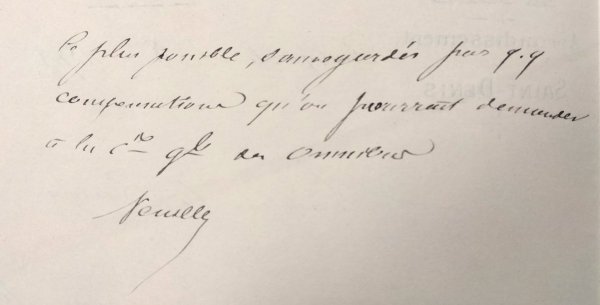 le plus possible, sauvegardés par q.q
compensations qu'on pourrait demander
à la Cie gle des omnibus
Neuilly
SAINT DENIS